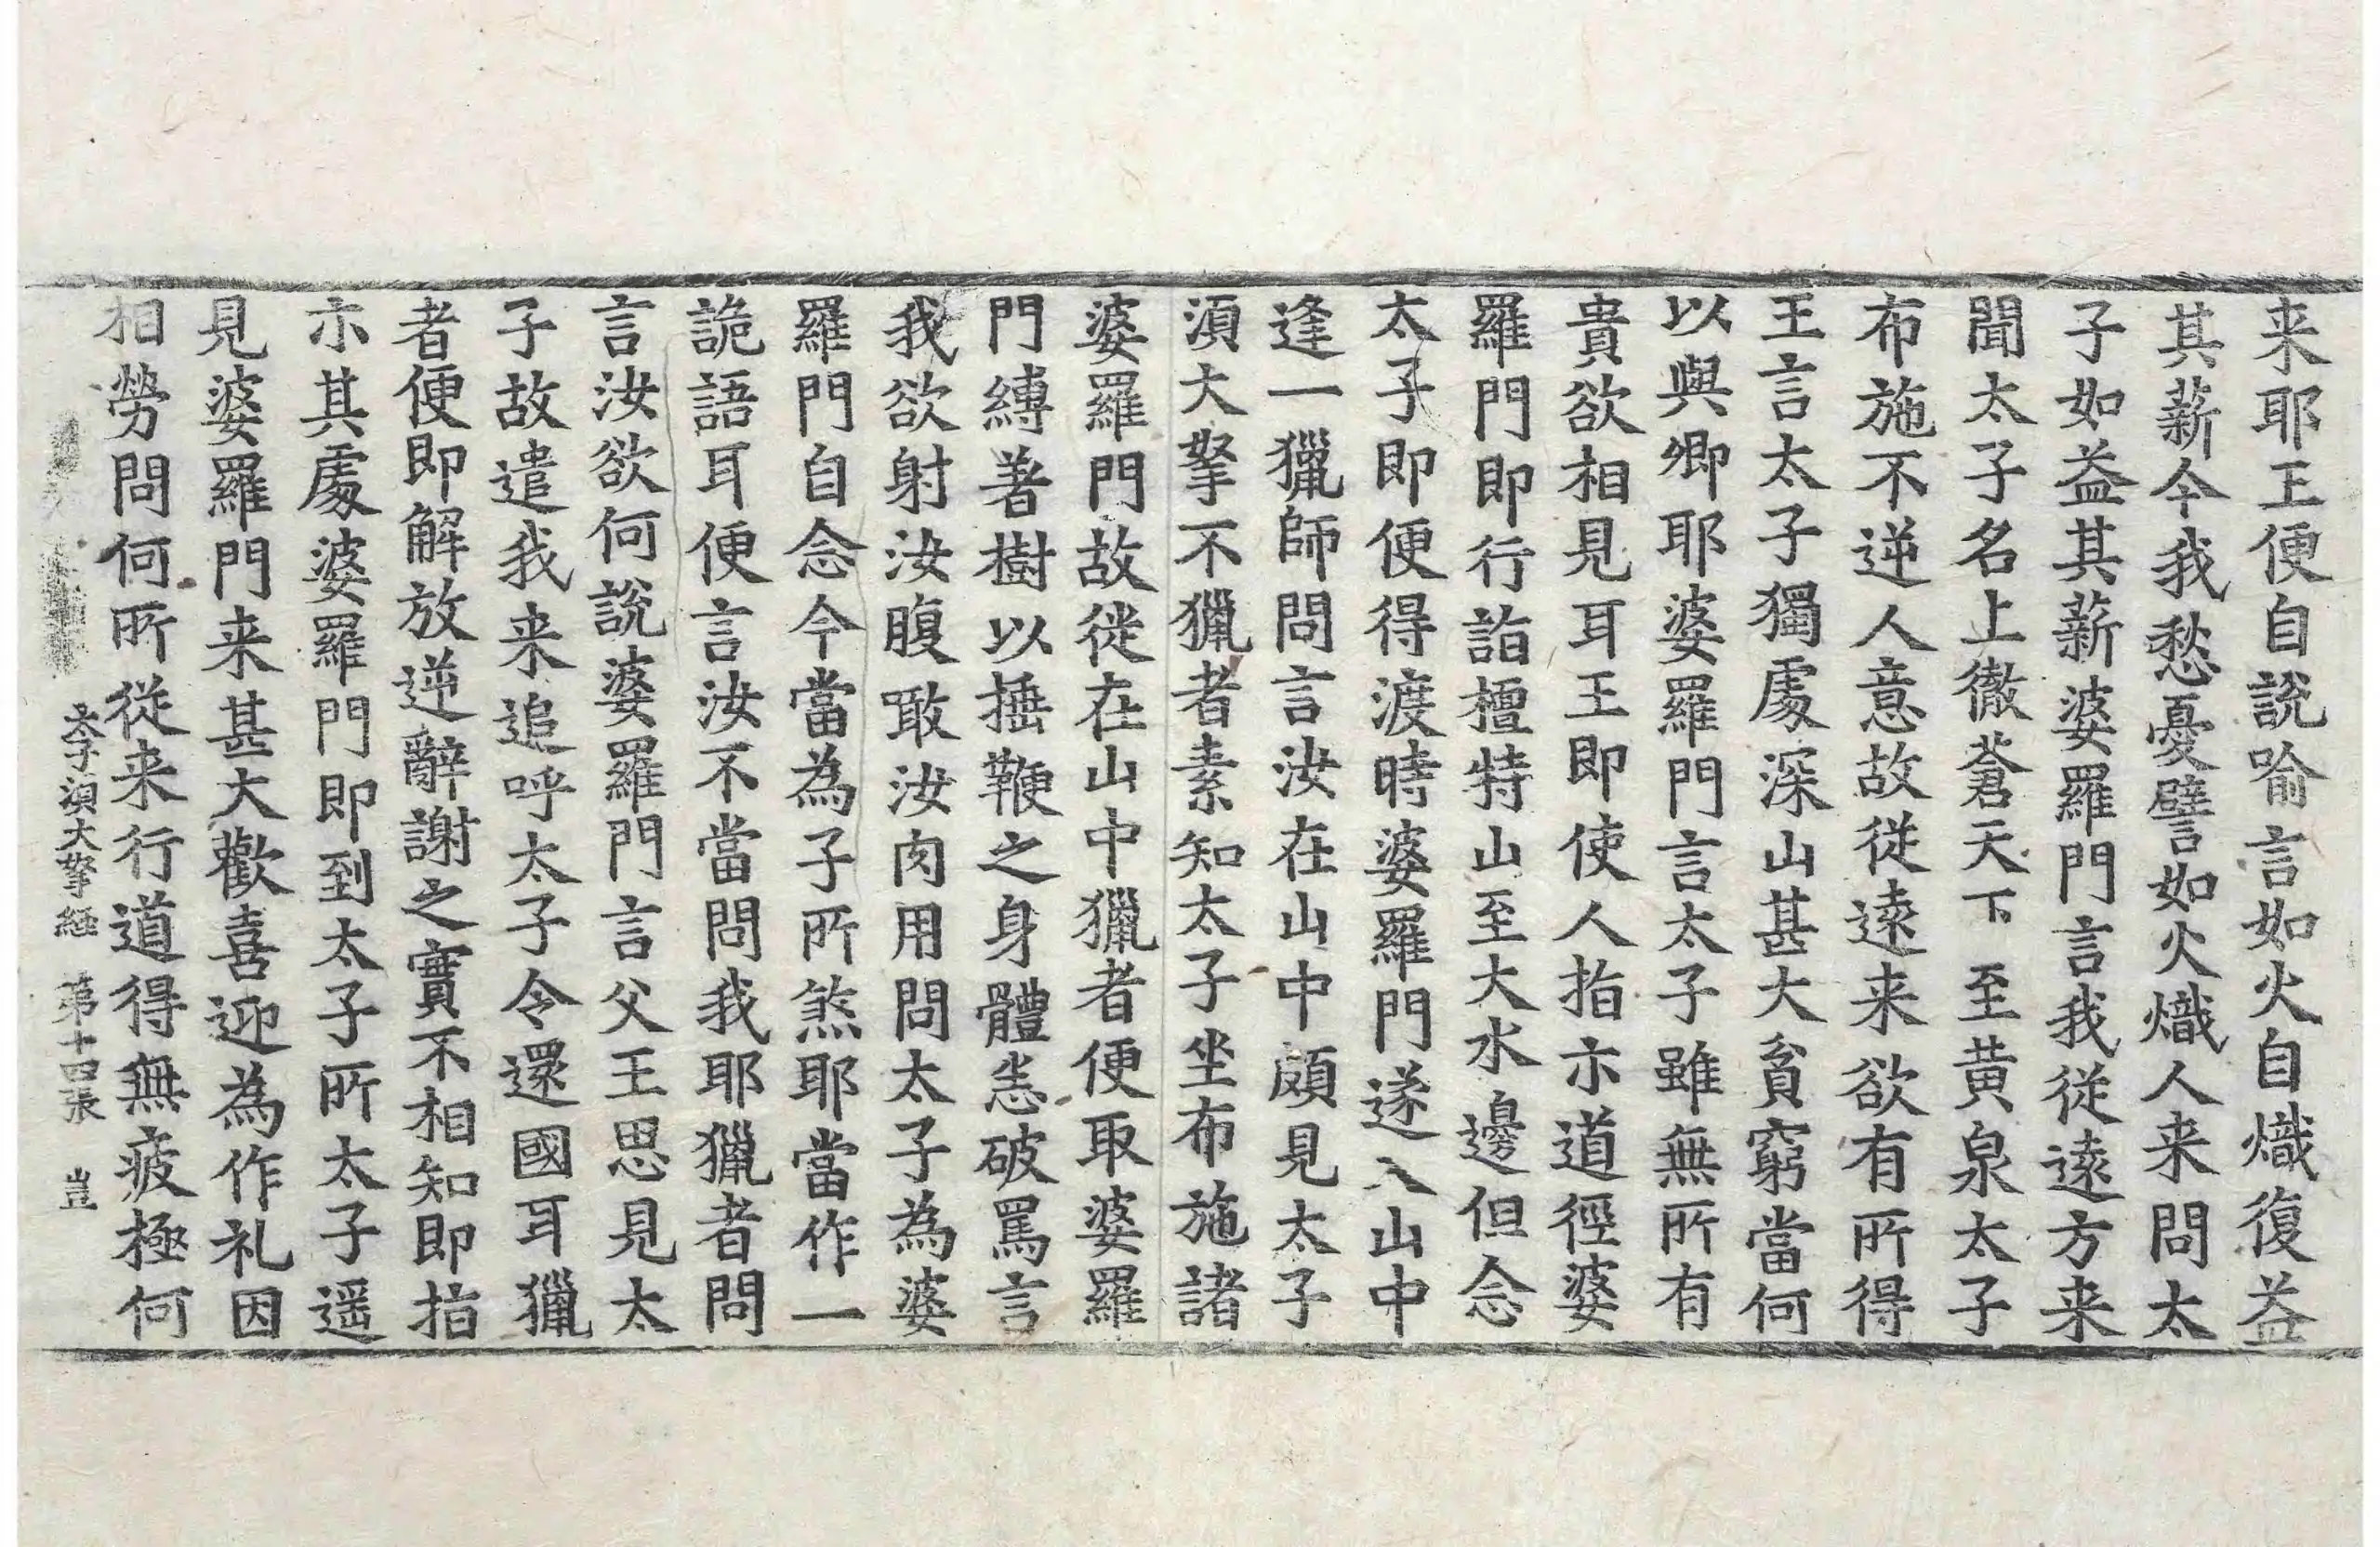 来耶王便自說喻言如火自熾復益
其薪今我愁憂譬如火熾人来問太
子如益其薪婆羅門言我從遠方来
聞太子名上徹蒼天下至黄泉太子
布施不逆人意故從遠来欲有所得
王言太子獨處深山甚大貧窮當何
以與卿耶婆羅門言太子雖無所有
貴欲相見耳王即使人指示道徑婆
羅門即行詣檀特山至大水邊但念
太子即便得渡時婆羅門遂入山中
逢一獵師問言汝在山中頗見太子
湏大拏不獵者素知太子坐布施諸
婆羅門故徙在山中獵者便取婆羅
門縛著樹以捶鞭之身體恙破罵言
我欲射汝腹噉汝肉用問太子為婆
羅門自念今當為子所煞耶當作一
詭語耳便言汝不當問我耶獵者問
言汝欲何說婆羅門言父王思見太
子故遣我来追呼太子令還國耳獵
者便即解放逆辭謝之實不相知即指
示其處婆羅門即到太子所太子遥
見婆羅門来甚大歡喜迎為作礼因
相勞問何所從来行道得無疲極何
太子湏大拏経 第十四張 豈